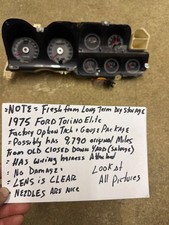 =NOTE= Fresh from Long Term Dry Storage
1975 FORD TORINO Elite
Factory Option Tach & Gauge Package
= Possibly has 9,790 original Miles
From old closed Down Yard (Salvage)
= HAS wiring harness Attached
= No Damage =
= LENS is CLEAR
NEEDLES ARE NICE
Look at
All Pictures